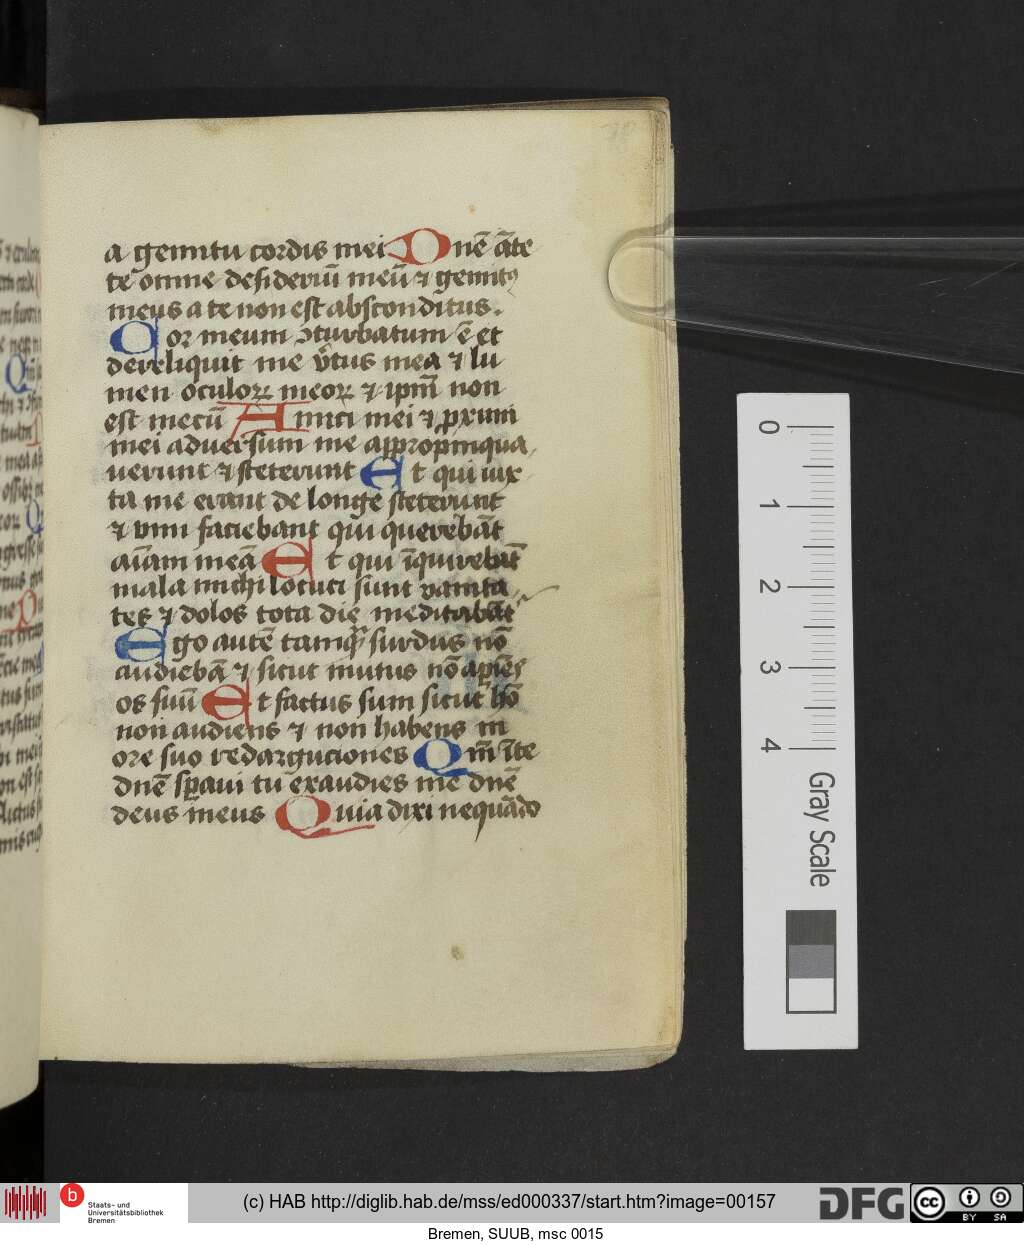 78
a gemitu cordis mei Dnē āte
te omne desideriū meū ⁊ gemitꝰ
meus a te non est absconditus.
Cor meum ɔturbatum ē et
dereliquit me v̓tus mea ⁊ lu
men oculoꝝ meoꝝ ⁊ ipm̄ non
est mecū Amici mei ⁊ ꝓximi
mei adversum me appropinqua
verunt ⁊ steterunt Et qui iux
ta me erant de longe steterunt
⁊ vim faciebant qui querebāt
aīam meā Et qui īquirebāt
mala michi locuti sunt vanita
tes ⁊ dolos tota die meditabāt
Ego autē tamqͣ surdus nō
audiebā ⁊ sicut mutus nō apiēs
os suū Et factus sum sicut hō
non audiens ⁊ non habens in
ore suo redarguciones Qm̄ ī te
dnē sp̄avi tu exaudies me dnē
deus meus Quia dixi nequādo
0
1
2
3
4
Gray Scale
b
Staats- und
Universitätsbibliothek
Bremen
(c) HAB http://diglib.hab.de/mss/ed000337/start.htm?image=00157
DFG
cc BY SA
Bremen, SUUB, msc 0015